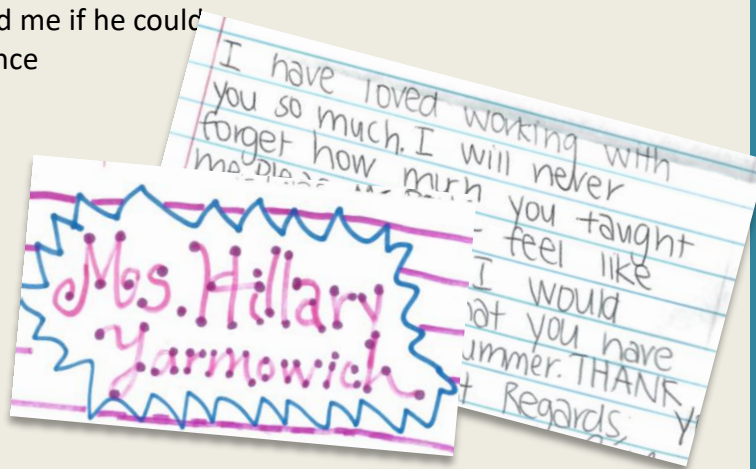 d me if he could
nce
I have loved working with
you so much. I will never
forget how much you taught
me
feel like
I would
you have
ummer. THANK
Regards,
Ms. Hillary
Yarmowich